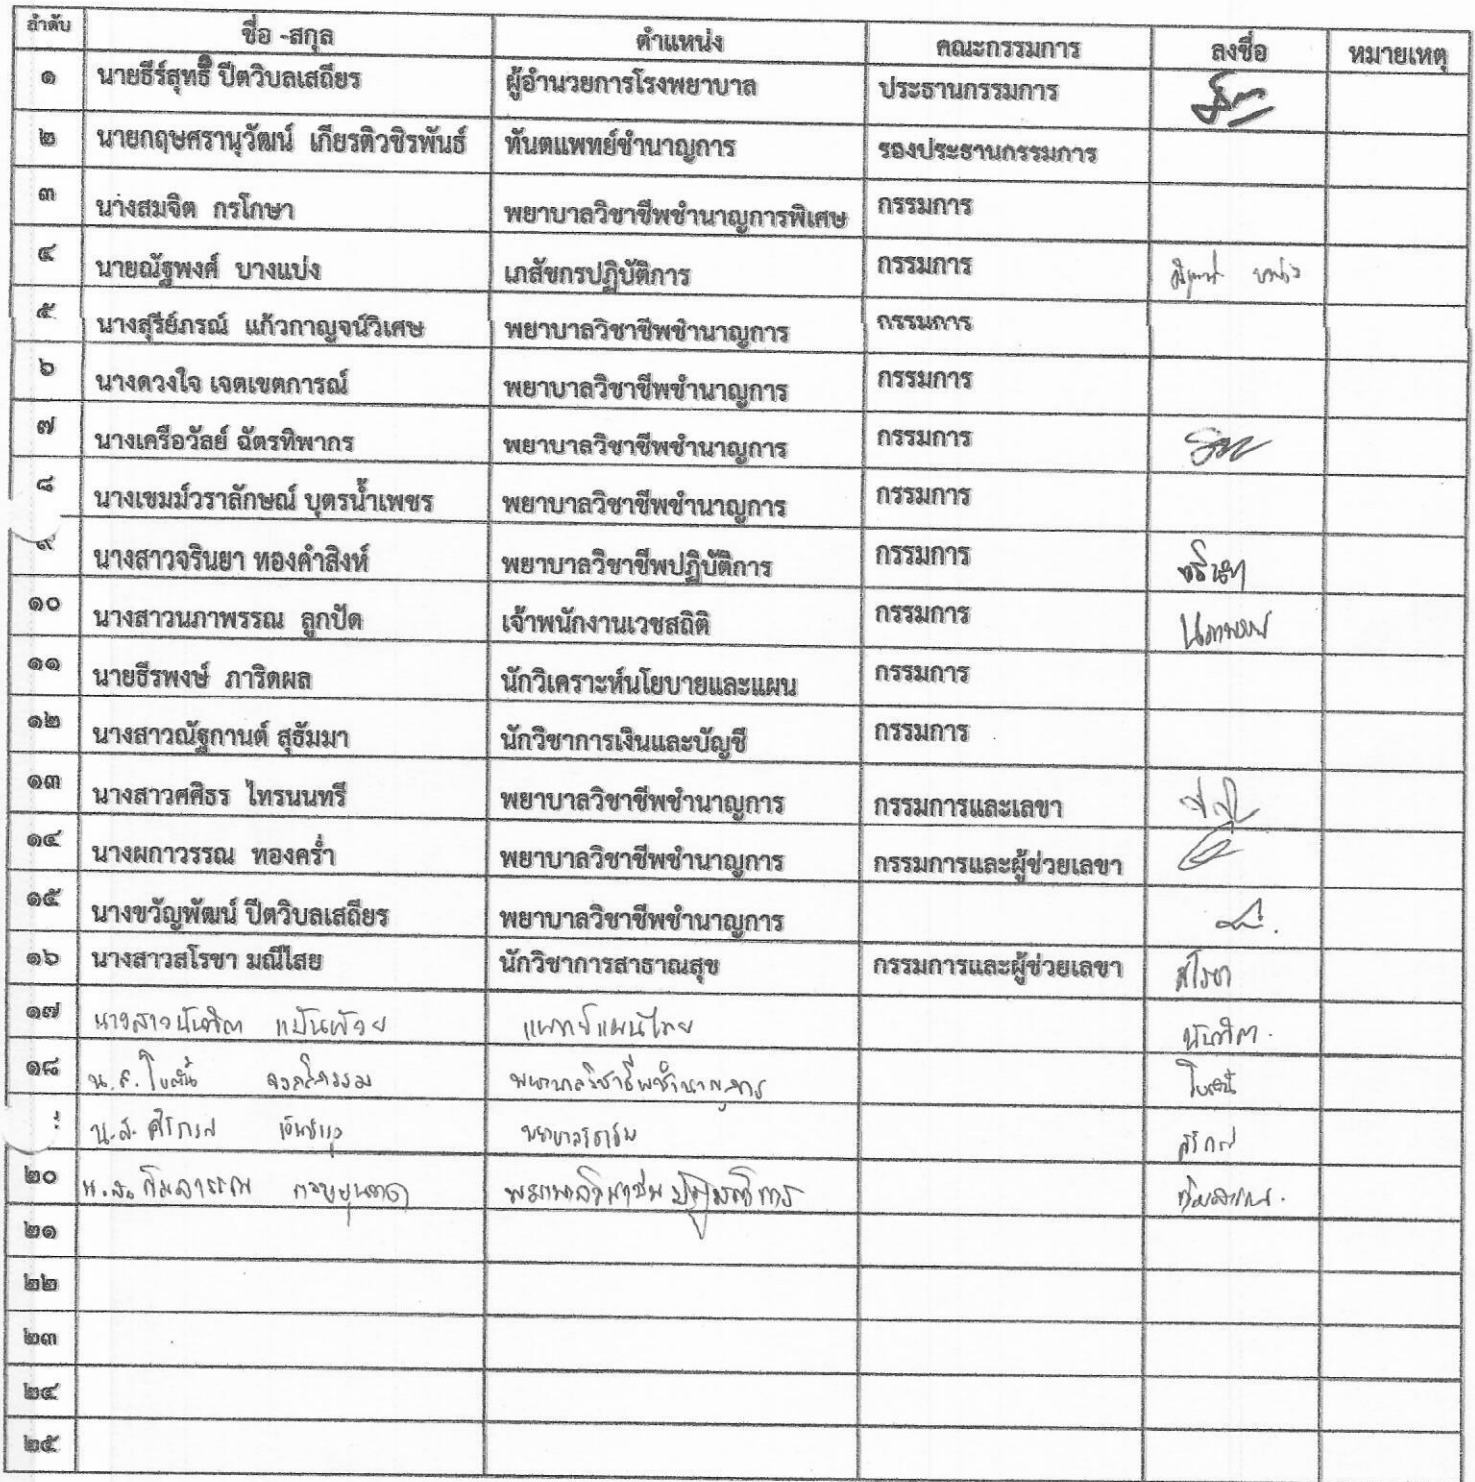 ลำดับ ชื่อ -สกุล ตำแหน่ง คณะกรรมการ ลงชื่อ หมายเหตุ
๑ นายธีร์สุทธิ์ ปีตวิบลเสถียร ผู้อำนวยการโรงพยาบาล ประธานกรรมการ
๒ นายกฤษศรานุวัฒน์ เกียรติวชิรพันธ์ ทันตแพทย์ชำนาญการ รองประธานกรรมการ
๓ นางสมจิต กรโกษา พยาบาลวิชาชีพชำนาญการพิเศษ กรรมการ
๔ นายณัฐพงศ์ บางแบ่ง เภสัชกรปฏิบัติการ กรรมการ
๕ นางสุรีย์ภรณ์ แก้วกาญจน์วิเศษ พยาบาลวิชาชีพชำนาญการ กรรมการ
๖ นางดวงใจ เจตเขตการณ์ พยาบาลวิชาชีพชำนาญการ กรรมการ
๗ นางเครือวัลย์ ฉัตรทิพากร พยาบาลวิชาชีพชำนาญการ กรรมการ
๘ นางเขมม์วราลักษณ์ บุตรน้ำเพชร พยาบาลวิชาชีพชำนาญการ กรรมการ
๙ นางสาวจรินยา ทองคำสิงห์ พยาบาลวิชาชีพปฏิบัติการ กรรมการ จรินยา
๑๐ นางสาวนภาพรรณ ลูกปัด เจ้าพนักงานเวชสถิติ กรรมการ นภาพรรณ
๑๑ นายธีรพงษ์ ภาริตผล นักวิเคราะห์นโยบายและแผน กรรมการ
๑๒ นางสาวณัฐกานต์ สุธัมมา นักวิชาการเงินและบัญชี กรรมการ
๑๓ นางสาวศศิธร ไทรนนทรี พยาบาลวิชาชีพชำนาญการ กรรมการและเลขา
๑๔ นางผกาวรรณ ทองคร่ำ พยาบาลวิชาชีพชำนาญการ กรรมการและผู้ช่วยเลขา
๑๕ นางขวัญพัฒน์ ปีตวิบลเสถียร พยาบาลวิชาชีพชำนาญการ
๑๖ นางสาวสโรชา มณีไสย นักวิชาการสาธาณสุข กรรมการและผู้ช่วยเลขา สโรชา
๑๗ นางสาว แพทย์แผนไทย
๑๘ น.ส. พยาบาลวิชาชีพชำนาญการ
น.ส. พยาบาลวิชาชีพ
๒๐ น.ส. พยาบาลวิชาชีพปฏิบัติการ
๒๑
๒๒
๒๓
๒๔
๒๕